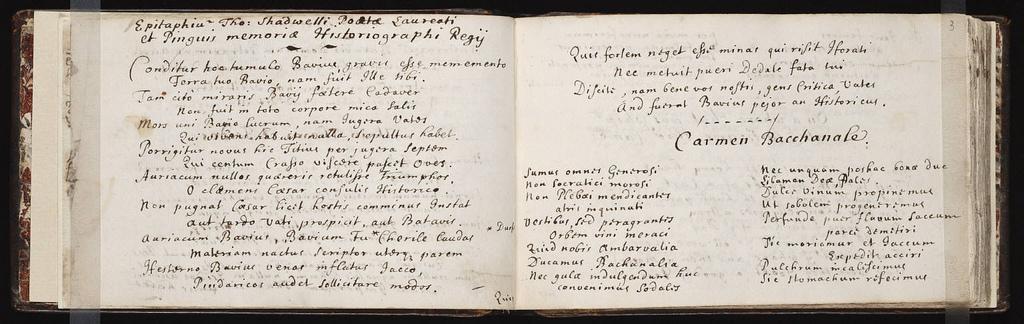 Epitaphiu~ Tho: Shadwelli Poetæ Laureati
et Pinguis memoriæ Historiographi Regij
Conditur hoc tumulo Bavius, gravis esse memento
Terra tuo Bavio, nam fuit Ille tibi.
Tam cito miraris Bavij fœtere Cadaver
Non fuit in toto corpore mica Salis
Mors uni Bavio lucrum, nam Jugera Vates
Qui vivens habuit nulla, sepultus habet.
Porrigitur novus hic Titius per jugera Septem
Qui centum Crasso viscere pascit Oves.
Auriacum nullos quæreris retulisse Triumphos
O clemens Cæsar consulis Historico
Non pugnat Cæsar licet hostis comminus Instat
aut tardo Vati prospicit, aut Batavis.
Auriacum Bavius, Bavium Tu~ Chœrile laudas
Materiam nactus Scriptor uterq parem
Hesterno Bavius venas inflatus Jacco
Pindaricos audet Sollicitare modos.
Quis
3
Quis fortem neget esse minas qui risit Horati
Nec metuit pueri Dedale fata tui
Discite, nam bene vos nostis, gens Critica, Vates
And fuerat Bavius pejor an Historicus.
Carmen Bacchanale.
Sumus omnes Generosi
Non Socratici morosi
Non Plebas mendicantes
atris inquinati
Vestibus sed peragrantes
Orbem vini meraci
Quid nobis Ambarvalia
Ducamus Bachanalia
Nec gulæ indulgendum huc
convenimus Sodalis
Nec unquam posthac bonæ duc
Elamen Deæ Palis
Dulce vinum propinemus
Ut sobolem progeneremus
Perfunde puer flavum Saccum
parci demitiri
Sic moriamur et Jaccum
Expedit acciri
Pulchrum incaliscimus
Sic Stomachum reficimus